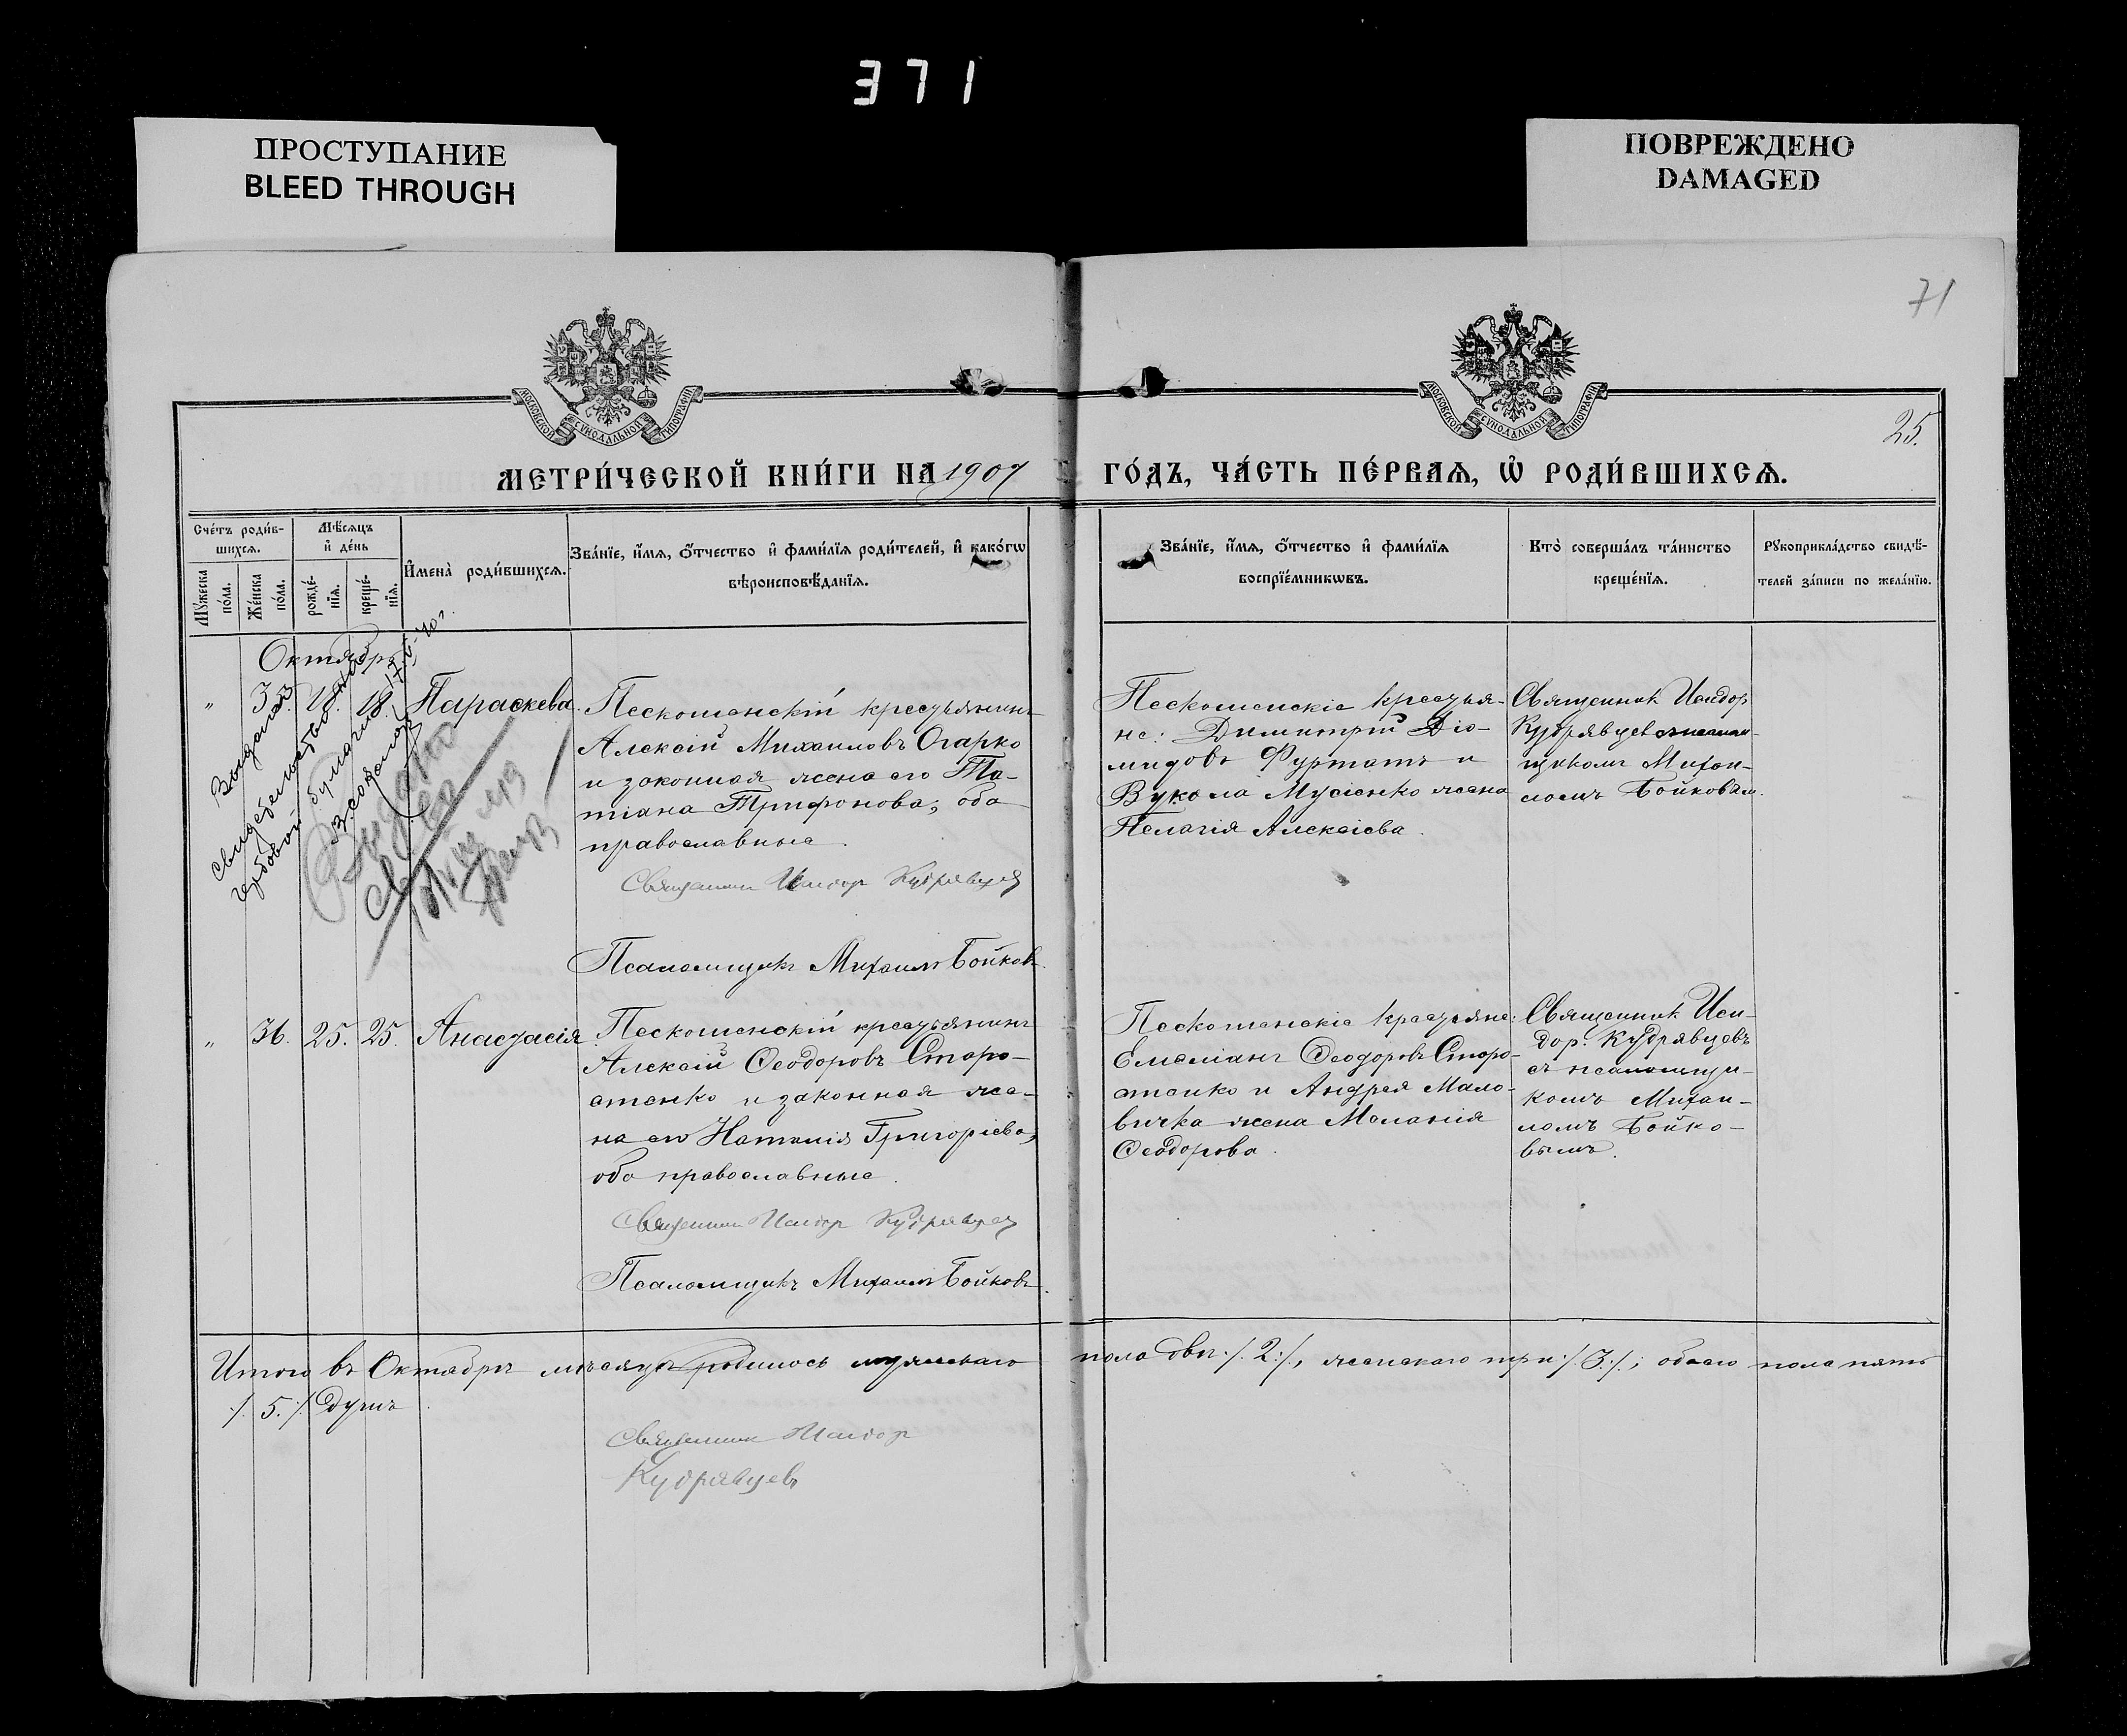 371
ПРОСТУПАНИЕ
BLEED THROUGH
ПОВРЕЖДЕНО
DAMAGED
71
МОСКОВСКОЙ СѴНОДАЛЬНОЙ ТИПОГРАФІИ
МОСКОВСКОЙ СѴНОДАЛЬНОЙ ТИПОГРАФІИ
25.
МЕТРИ́ЧЕСКОЙ КНИ́ГИ НА 1907 ГО́ДЪ, ЧА́СТЬ ПЕ́РВАѦ, Ѡ҆ РОДИ́ВШИХСѦ.
Сче́тъ роди́в-
шихсѧ.
Мꙋ́жеска
по́ла.
Же́нска
по́ла.
Мѣ́сѧцъ
и҆ де́нь
рожде́-
нїѧ.
креще́-
нїѧ.
И҆мена̀ роди́вшихсѧ.
Зва́нїе, и҆́мѧ, ѻ҆́тчество и҆ фами́лїѧ роди́телей, и҆ како́гѡ
вѣроисповѣ́данїѧ.
Зва́нїе, и҆́мѧ, ѻ҆́тчество и҆ фами́лїѧ
воспрїе́мникѡвъ.
Кто̀ соверша́лъ та́инство
креще́нїѧ.
Рꙋкоприкла́дство свидѣ́-
телей за́писи по жела́нїю.
Октябрь
" 35. 18. 18. Параскева.
Пескошанскій крестьянинъ
Алексій Михаиловъ Огарко
и законная жена его Та-
тіана Трифонова; оба
православные.
Священник Исидор Кудрявцев
Псаломщикъ Михаилъ Бойковъ.
Пескошенскіе крестья-
не: Димитрій Діо-
мидовъ Фуртатъ и
Вукола Мусіенко жена
Пелагія Алексіева.
Священникъ Исидор
Кудрявцевъ с псалом-
щикомъ Михаи-
ломъ Бойковым.
Выдана
свидетельство
гербовой бумагой
" 36. 25. 25. Анастасія.
Пескошенскій крестьянинъ
Алексій Ѳеодоровъ Старо-
стенко и законная же-
на его Наталія Григоріева;
оба православные.
Священник Исидор Кудрявцев
Псаломщикъ Михаилъ Бойковъ.
Пескошенскіе крестьяне:
Емеліанъ Ѳеодоровъ Старо-
стенко и Андрея Мало-
вичка жена Меланія
Ѳеодорова.
Священник Иси-
дор. Кудрявцевъ
съ псаломщи-
комъ Михаи-
ломъ Бойко-
вымъ.
Итого въ Октябрѣ мѣсяцѣ родилось мужескаго пола двѣ ./. 2 ./., женскаго три ./. 3 ./.; обоего пола пять
./. 5. ./. душъ.
Священник Исидор
Кудрявцевъ